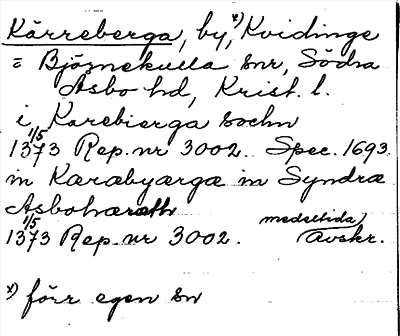 Kärreberga, by,x) Kvidinge
= Björnekulla snr, Södra
Åsbo hd, Krist. l.
i Karebierga sochn
1/5 1373 Rep. nr 3002. Spec. 1693.
in Karabyærgæ in Syndræ
Asbohæræth
1/5 1373 Rep. nr 3002. medeltida avskr.
x) förr egen sn